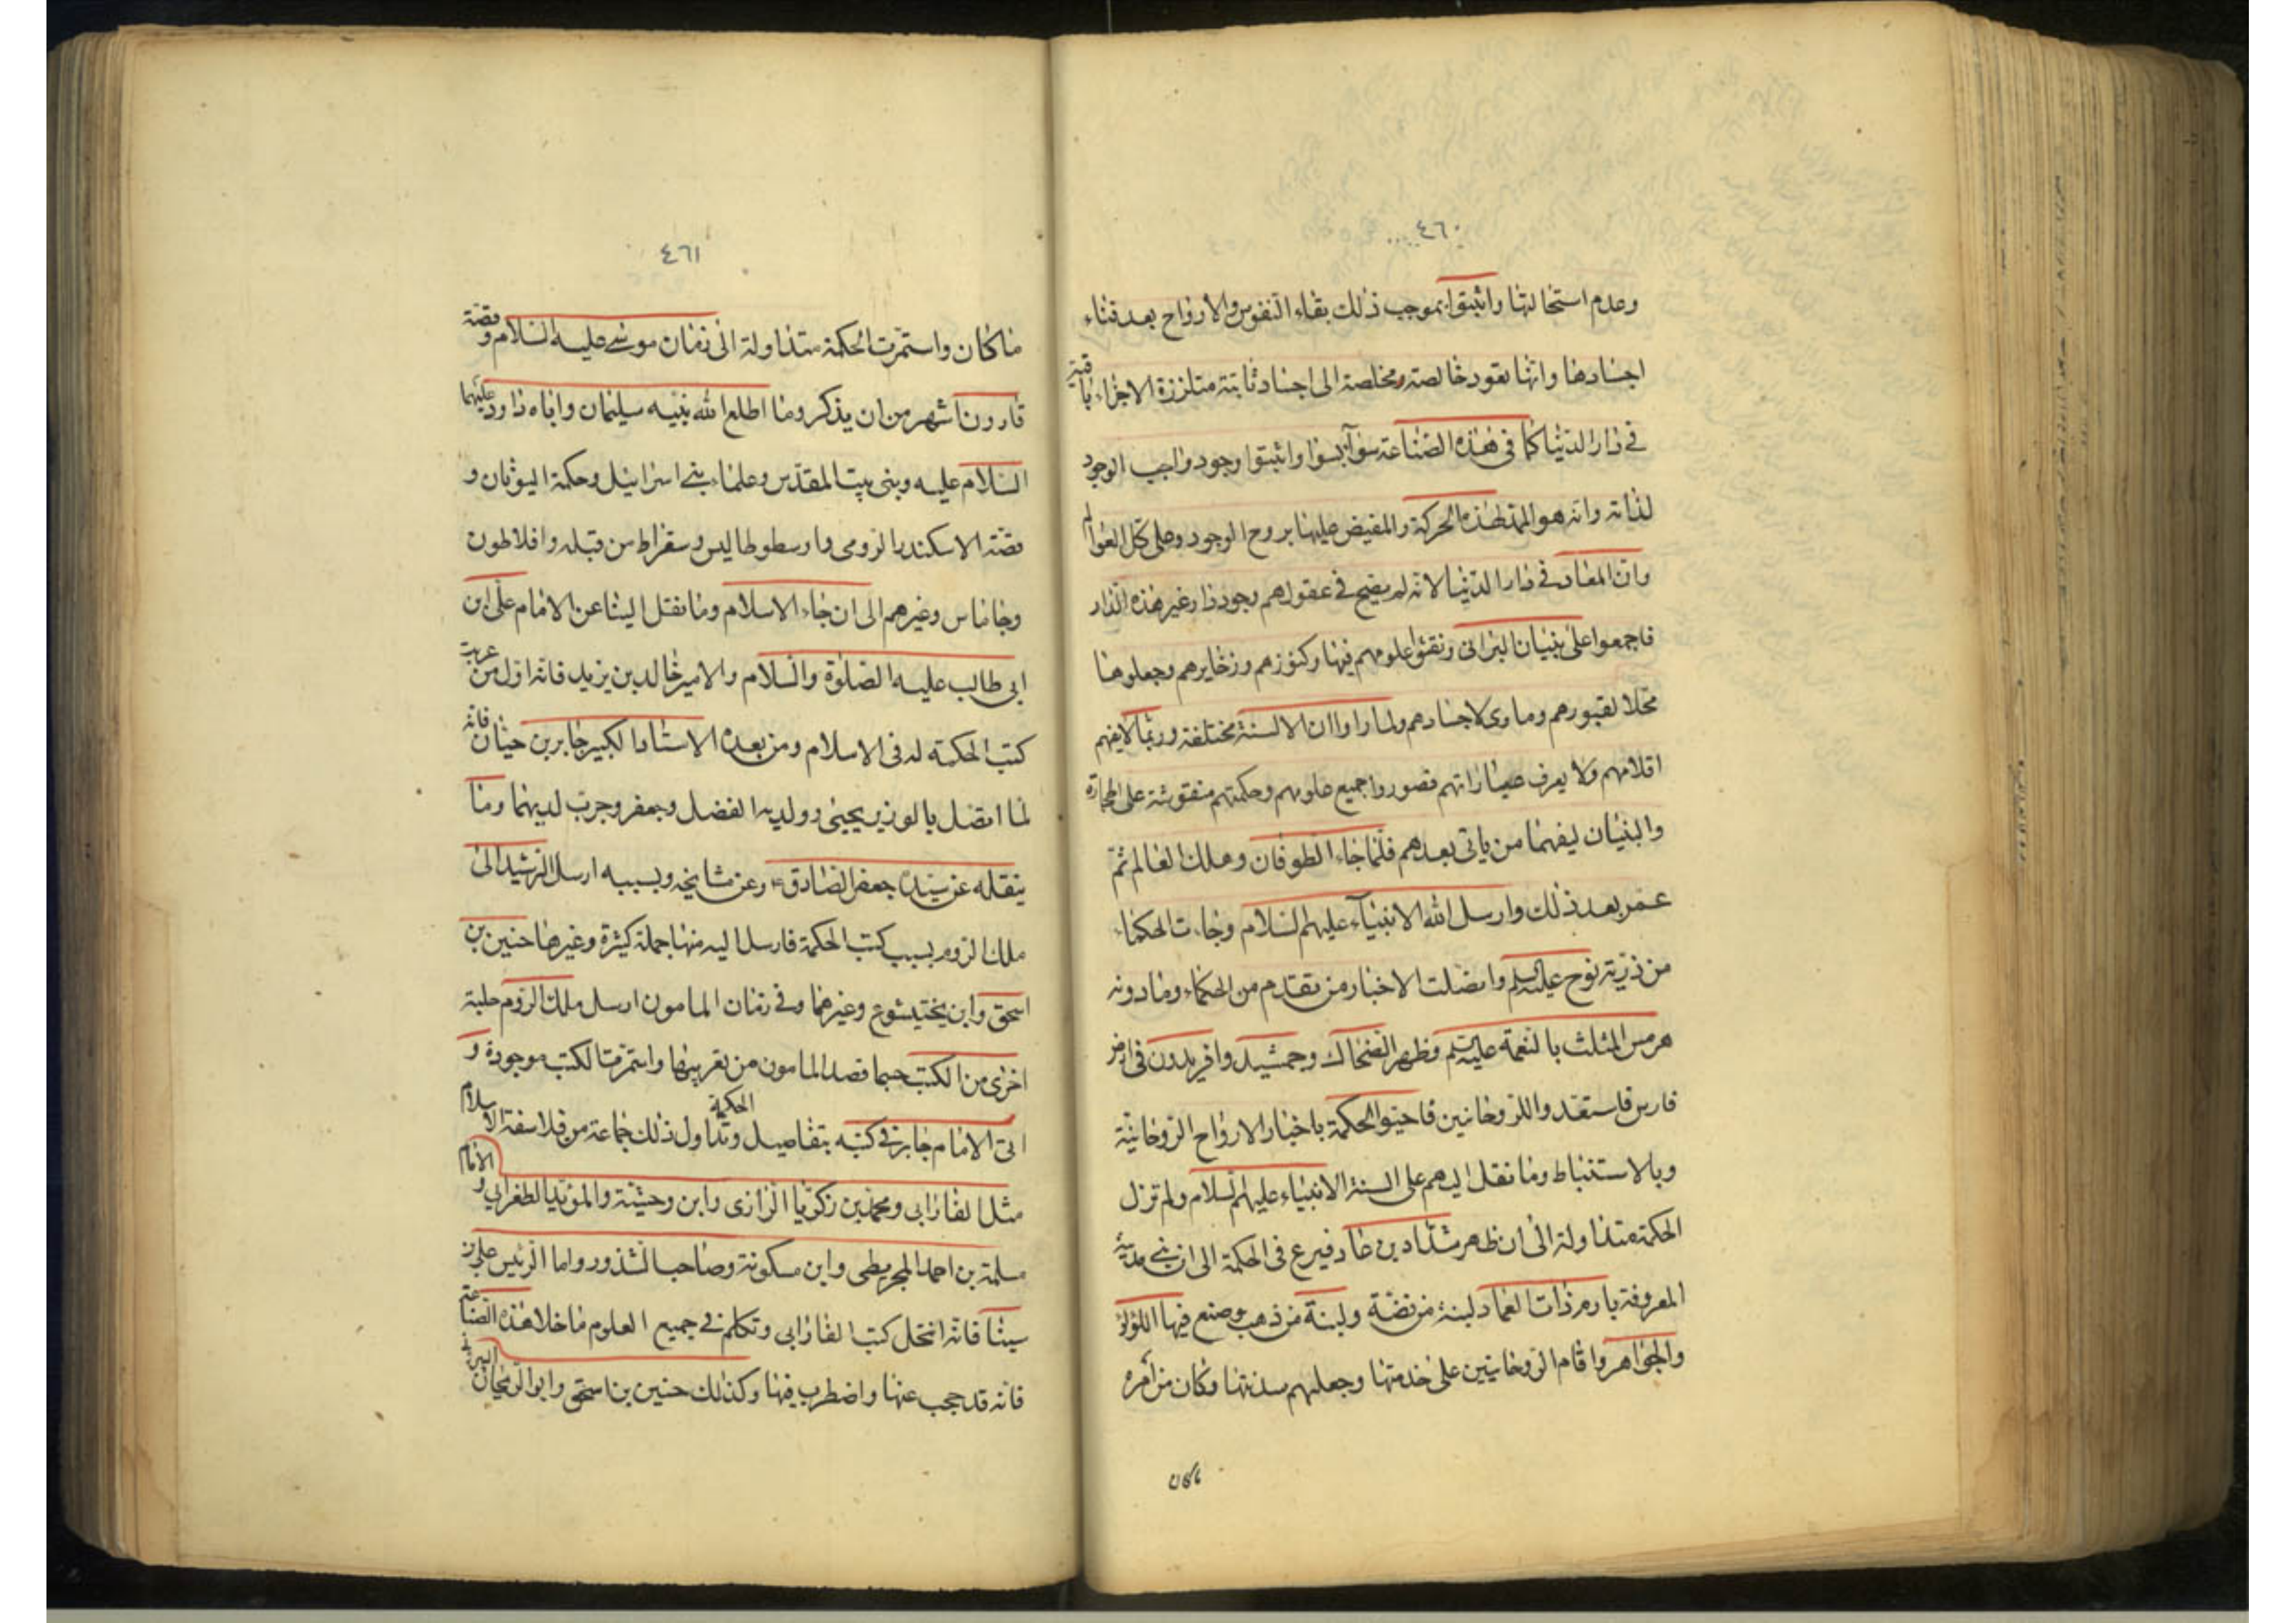 ٤٦٠
وعدم استحالتها واثبتوا بموجب ذلك بقاء النفوس والارواح بعد فناء
اجسادها وانها تعود خالصة مخلصة الى اجساد ثابتة متلززة الاجزاء باقية
في دار الدنيا كما في هذه الصناعة سواء بسوا واثبتوا وجود واجب الوجود
لذاته وانه هو الممد لهذه الحركة والمفيض عليها بروح الوجود وعلى كل العوالم
وان المعاد في دار الدنيا لانه لم يصح في عقولهم وجود دار غير هذه الدار
فاجمعوا على بنيان البرابى ونقشوا علومهم فيها وكنوزهم وزخايرهم وجعلوها
محلا لقبورهم وماوى لاجسادهم ولما راوا ان الالسنة مختلفة وربما لا يفهم
اقلامهم ولا يعرف عباراتهم فصوروا جميع علومهم وحكمتهم منقوشة على الحجارة
والبنيان ليفهما من ياتى بعدهم فلما جاء الطوفان وهلك العالم ثم
عمر بعد ذلك وارسل الله الانبياء عليهم السلام وجاءت الحكماء
من ذرية نوح عليه السلم واتصلت الاخبار من تقدم من الحكماء وما دونه
هرمس المثلث بالنعمة عليه السلم وظهر الضحاك وجمشيد وافريدون في ارض
فارس فاستعبدوا للروحانيين فاحيوا الحكمة باخبار الارواح الروحانية
وبالاستنباط وما نقل اليهم على السنة الانبياء عليهم السلام ولم تزل
الحكمة متداولة الى ان ظهر شداد بن عاد فبرع في الحكمة الى ان بنى مدينة
المعروفة بارم ذات العماد لبنة من فضة ولبنة من ذهب وصنع فيها اللؤلؤ
والجواهر واقام الروحانيين على خدمتها وجعلهم سدنتها وكان من امره
ما كان
٤٦١
ما كان واستمرت الحكمة متداولة الى زمان موسى عليه السلام وقصة
قارون اشهر من ان يذكر وما اطلع الله نبيه سليمان واباه داود عليهما
السلام عليه وبنى بيت المقدس وعلماء بنى اسرائيل وحكمة اليونان و
قصة الاسكندر الرومى وارسطوطاليس وسقراط من قبله وافلاطون
وجاماس وغيرهم الى ان جاء الاسلام وما نقل الينا عن الامام على ابن
ابى طالب عليه الصلوة والسلام والامير خالد بن يزيد فانه اول من عربت
كتب الحكمة له فى الاسلام ومن بعده الاستاد الكبير جابر بن حيان فانه
لما اتصل بالوزير يحيى وولديه الفضل وجعفر وجرت لديهما وما
ينقله عن سيده جعفر الصادق ع وعن مشايخه وبسببه ارسل الرشيد الى
ملك الروم بسبب كتب الحكمة فارسل اليه منها جملة كثيرة وغيرها حنين بن
اسحق وابن بختيشوع وغيرهما وفي زمان المامون ارسل ملك الروم جلبة
اخرى من الكتب حبما قصد المامون من تعريبها واستمرت الكتب موجودة و
اتى الامام جابر في كتبه بتفاصيل الحكمة وتداول ذلك جماعة من فلاسفة الاسلام
مثل الفارابى ومحمد بن زكريا الرازى وابن وحشية والمؤيد الطغرايى والامام
مسلمة بن احمد المجريطى وابن مسكونة وصاحب الشذور واما الرئيس على بن
سينا فانه انتحل كتب الفارابى وتكلم في جميع العلوم ما خلا هذه الصناعة
فانه قد حجب عنها واضطرب فيها وكذلك حنين بن اسحق وابو الريحان البيرونى